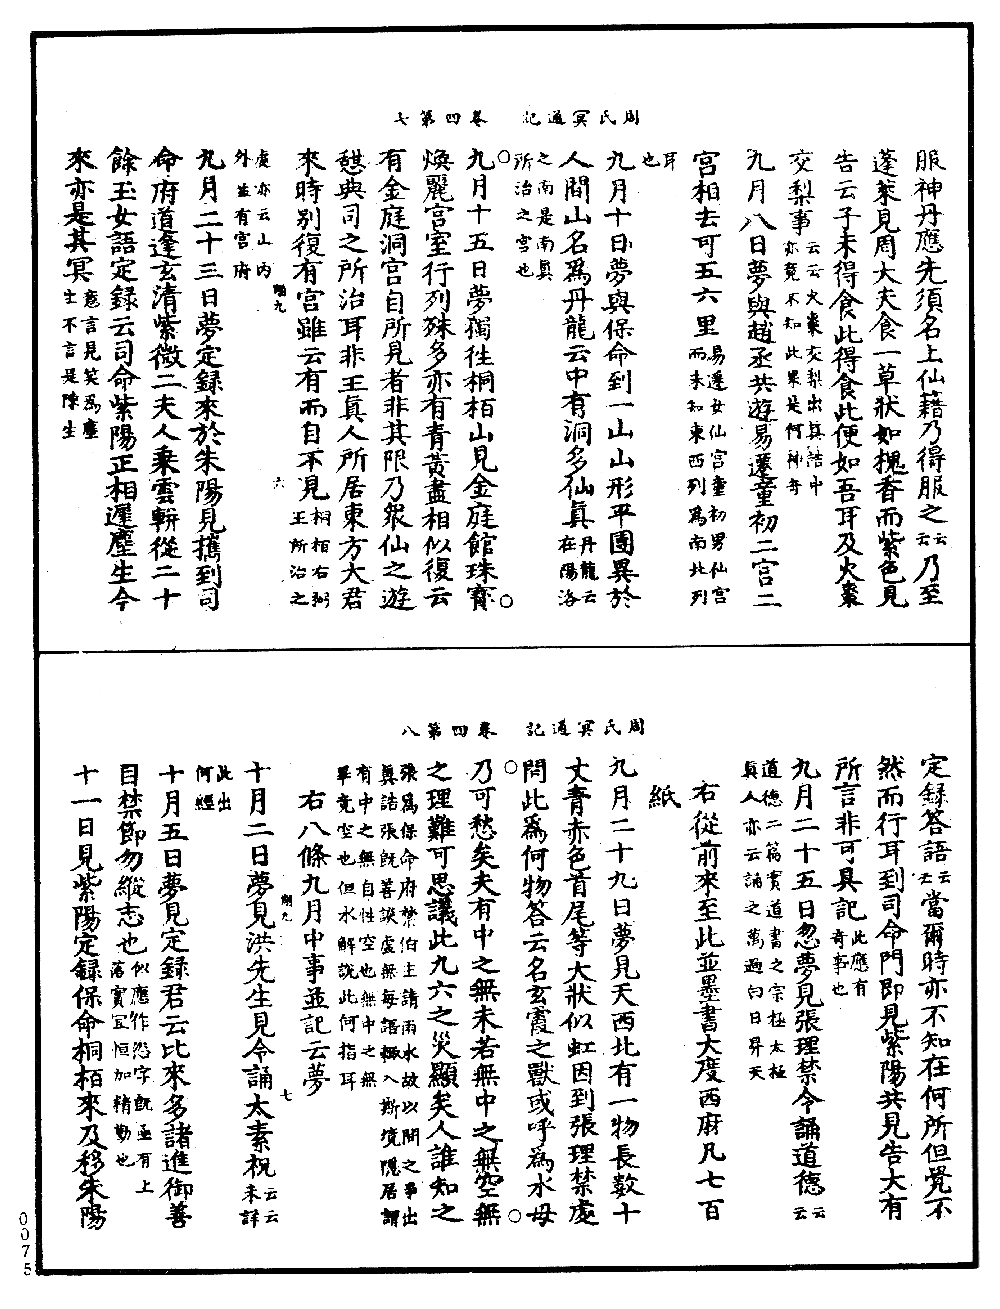 周氏冥通記　卷四第七
服神丹應先須名上仙籍乃得服之云云乃至
蓬萊見周大夫食一草狀如槐香而紫色見
告云子未得食此得食此便如吾耳及火棗
交梨事云云火棗交梨出真誥中亦竟不知此果是何神奇
九月八日夢與趙丞共遊易遷童初二宮二
宮相去可五六里易遷女仙宮童初男仙宮而未知東西列為南北列
耳也
九月十日夢與保命到一山山形平團異於
人間山名為丹龍云中有洞多仙真丹龍云在陽洛
之南是南真所治之宮也
九月十五日夢獨往桐栢山見金庭館珠寶
煥麗宮室行列殊多亦有青黃盡相似復云
有金庭洞宮自所見者非其限乃眾仙之遊
憇典司之所治耳非王真人所居東方大君
來時別復有宮雖云有而自不見桐栢右弼王所治之
處亦云山內外並有宮府
翔九　六
九月二十三日夢定錄來於朱陽見攜到司
命府道逢玄清紫微二夫人乘雲軿從二十
餘玉女語定錄云司命紫陽正相遲塵生今
來亦是其冥意言見笑為塵士不言是陳生
周氏冥通記　卷四第八
定錄答語云云當爾時亦不知在何所但覺不
然而行耳到司命門即見紫陽共見告大有
所言非可具記此應有奇事也
九月二十五日忽夢見張理禁令誦道德云云
道德二篇實道書之宗極太極真人亦云誦之萬遍白日昇天
右從前來至此並墨書大度西府凡七百
紙
九月二十九日夢見天西北有一物長數十
丈青赤色首尾等大狀似虹因到張理禁處
問此為何物答云名玄霞之獸或呼為水母
乃可愁矣夫有中之無未若無中之無空無
之理難可思議此九六之災顯矣人誰知之
張為保命府禁伯主請雨水故以問之事出真誥張既善談虛無每語輙入斯境隱居謂
有中之無自性空也無中之無畢竟空也但水解說此何指耳
右八條九月中事並記云夢
翔九　七
十月二日夢見洪先生見令誦太素祝云云未詳
此出何經
十月五日夢見定錄君云比來多諸進御善
自禁節勿縱志也似應作恣字既亟有上落實宜恒加精勤也
十一日見紫陽定錄保命桐栢來及移朱陽
0075